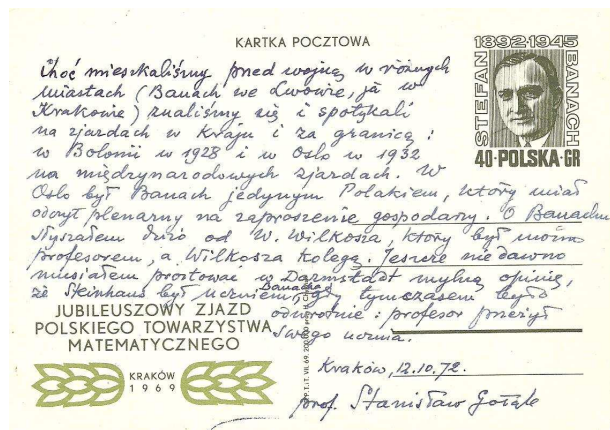 KARTKA POCZTOWA
STEFAN 1892-1945 BANACH
40·POLSKA·GR
Choć mieszkaliśmy przed wojną w różnych
miastach (Banach we Lwowie, ja w
Krakowie) znaliśmy się i spotykali
na zjazdach w kraju i za granicą:
w Bolonii w 1928 i w Oslo w 1932
na międzynarodowych zjazdach. W
Oslo był Banach jedynym Polakiem, który miał
odczyt plenarny na zaproszenie gospodarzy. O Banachu
słyszałem dużo od W. Wilkosza, który był moim
profesorem, a Wilkosza kolegą. Jeszcze niedawno
musiałem prostować w Darmstadt mylną opinię,
że Steinhaus był uczniem Banacha, gdy tymczasem było
odwrotnie i profesor przeżył
swego ucznia.
Kraków, 12.10.72.
prof. Stanisław Gołąb
JUBILEUSZOWY ZJAZD
POLSKIEGO TOWARZYSTWA
MATEMATYCZNEGO
KRAKÓW
1969